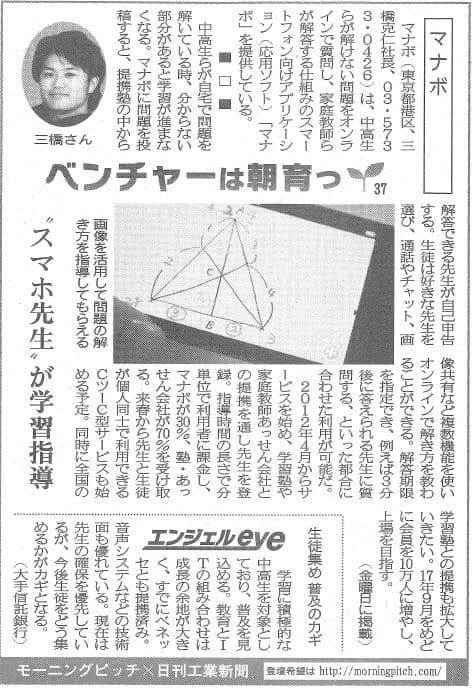 マナボ
マナボ（東京都港区、三
橋克仁社長、03・573
3・0426）は、中高生
らが解けない問題をオンラ
インで質問し、家庭教師ら
が解答する仕組みのスマー
トフォン向けアプリケーシ
ョン（応用ソフト）「マナ
ボ」を提供している。
■□■
中高生らが自宅で問題を
解いている時、分からない
部分があると学習が進まな
くなる。マナボに問題を投
稿すると、提携塾の中から
三橋さん
ベンチャーは朝育つ
37
解答できる先生が自己申告
する。生徒は好きな先生を
選び、通話やチャット、画
画像を活用して問題の解
き方を指導してもらえる
〝スマホ先生〟が学習指導
像共有など複数機能を使い
オンラインで解き方を教わ
ることができる。解答期限
を指定でき、例えば3分
後に答えられる先生に質
問する、といった都合に
合わせた利用が可能だ。
2012年4月からサ
ービスを始め、学習塾や
家庭教師あっせん会社と
の提携を通し先生を登
録。指導時間の長さで分
単位で利用者に課金し、
マナボが30%、塾・あっ
せん会社が70%を受け取
る。来春から先生と生徒
が個人同士で利用できる
CツーC型サービスも始
める予定。同時に全国の
学習塾との提携も拡大して
いきたい。17年9月をめど
に会員を10万人に増やし、
上場を目指す。
（金曜日に掲載）
エンジェルeye
生徒集め 普及のカギ
学習に積極的な
中高生を対象とし
ており、普及を見
込める。教育とI
Tの組み合わせは
成長の余地が大き
く、すでにベネッ
セとも提携済み。
音声システムなどの技術
面も優れている。現在は
先生の確保を優先してい
るが、今後生徒をどう集
めるかがカギとなる。
（大手信託銀行）
モーニングピッチ×日刊工業新聞
登壇希望は http://morningpitch.com/